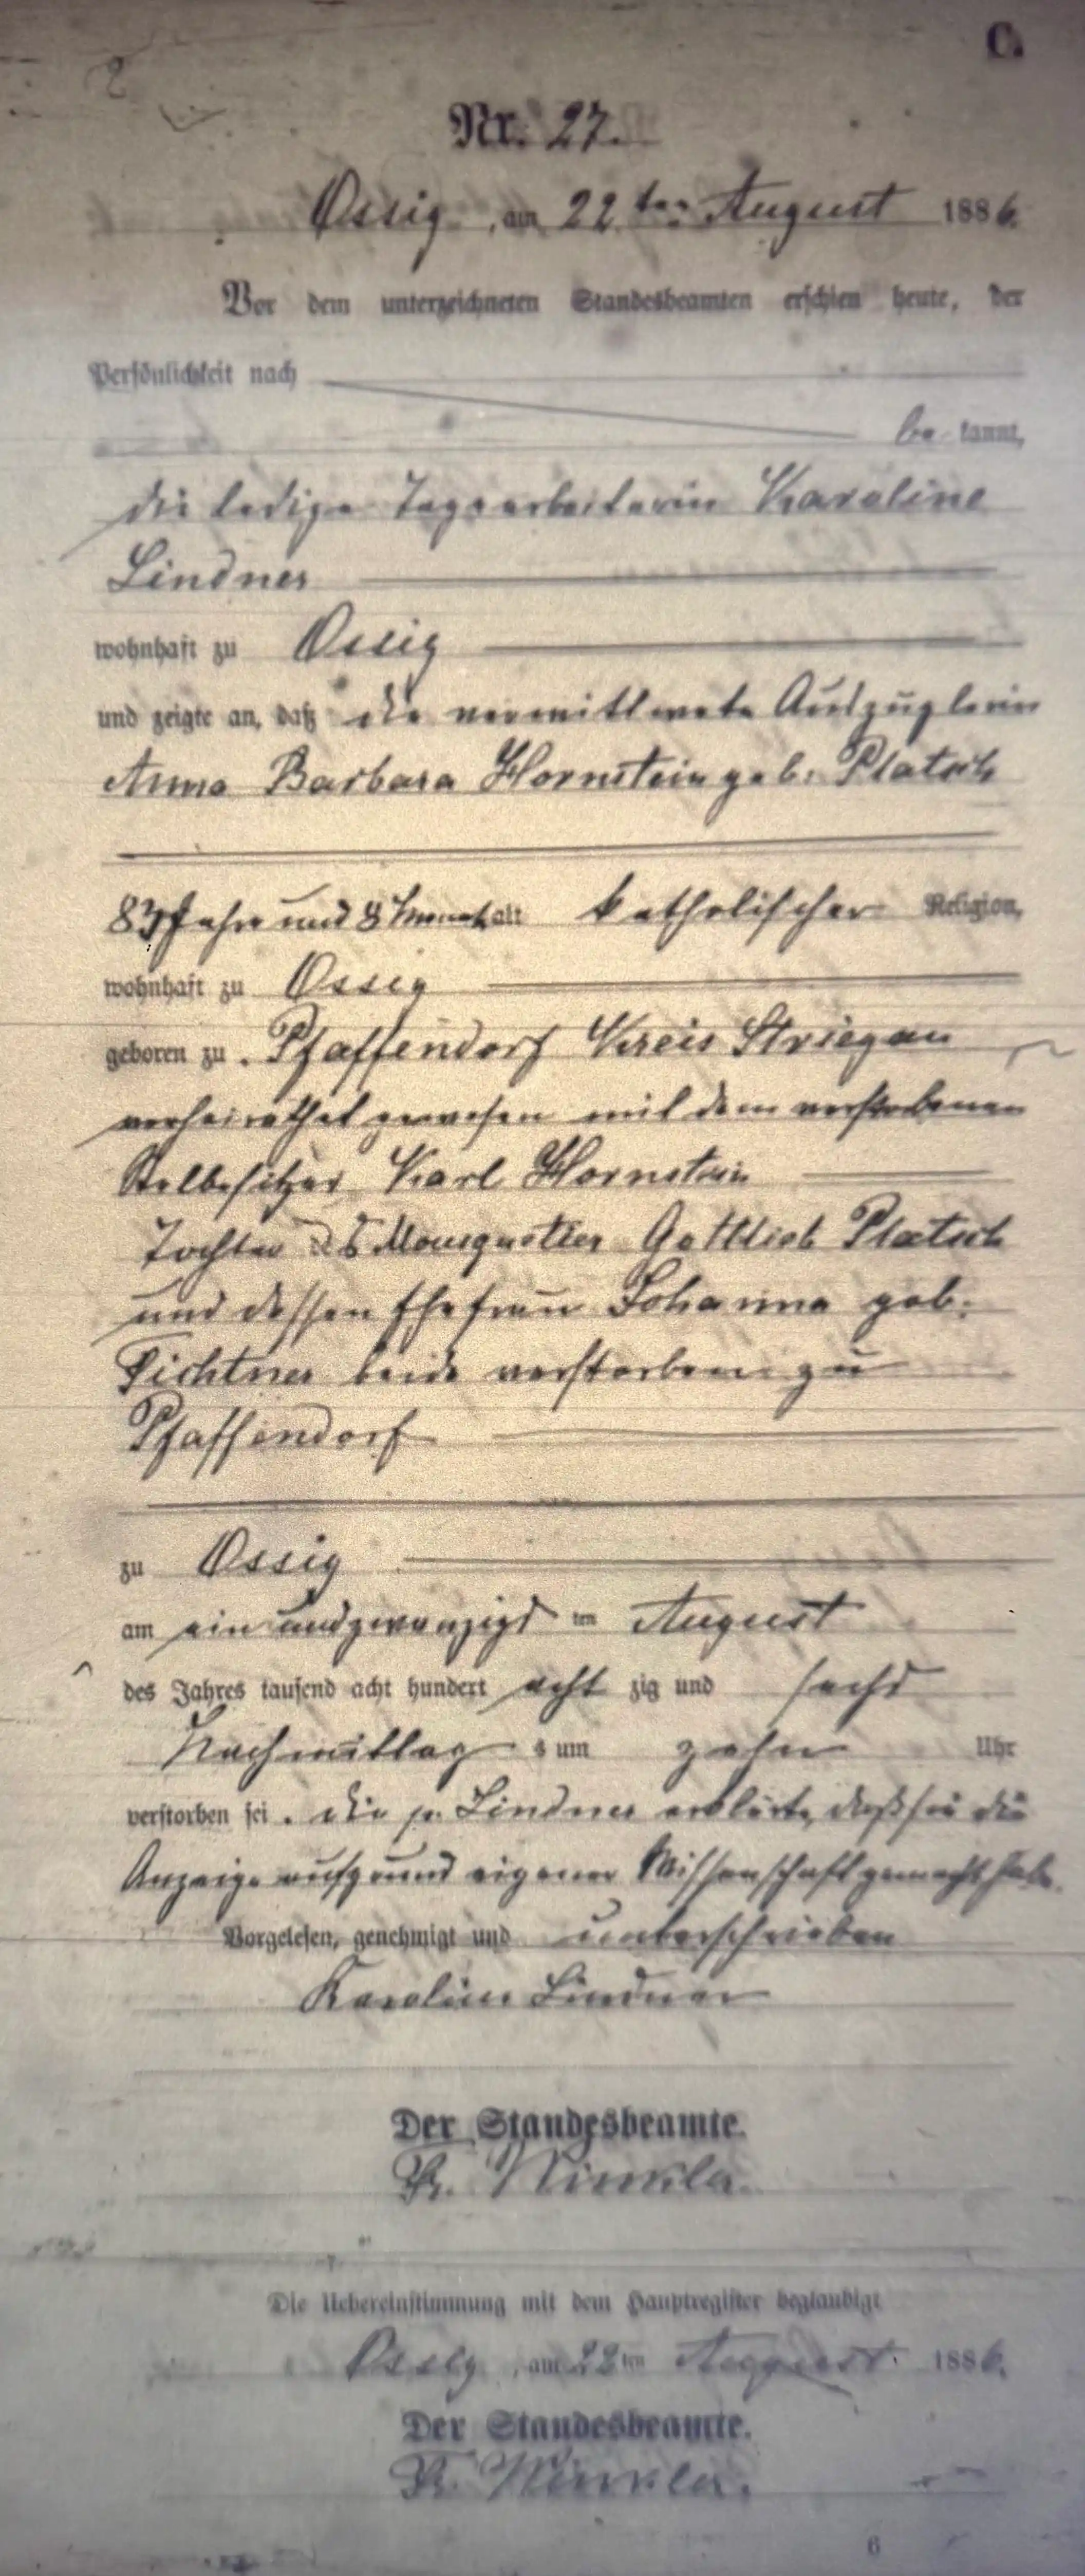 C.
Nr. 27.
Ossig, am 22 ten August 1886.
Vor dem unterzeichneten Standesbeamten erschien heute, der
Persönlichkeit nach
be kannt,
die ledige Tagearbeiterin Karoline
Lindner
wohnhaft zu Ossig
und zeigte an, daß die verwittwete Auszüglerin
Anna Barbara Hornstein geb. Platsch
83 Jahr und 8 Monat alt katholischer Religion,
wohnhaft zu Ossig
geboren zu Pfaffendorf Kreis Striegau
verheirathet gewesen mit dem verstorbenen
Stelbesitzer Karl Hornstein
Tochter des Mousquetier Gottlieb Platsch
und dessen Ehefrau Johanna geb.
Fichtner beide verstorben zu
Pfaffendorf
zu Ossig
am ein und zwanzigs ten August
des Jahres tausend acht hundert acht zig und sechs
Nachmittag s um zehn Uhr
verstorben sei. die p. Lindner erklärte, daß sie die
Anzeige aufgrund eigener Wissenschaft gemacht habe.
Vorgelesen, genehmigt und unterschrieben
Karoline Lindner
Der Standesbeamte.
Winkler.
Die Uebereinstimmung mit dem Hauptregister beglaubigt
Ossig, am 22 ten August. 1886.
Der Standesbeamte.
Winkler.
6